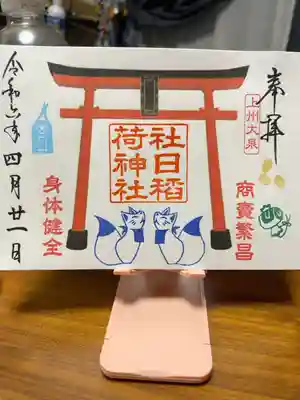 奉拝
上州大泉
商売繁昌
社日稲
荷神社
身体健全
令和六年四月廿一日